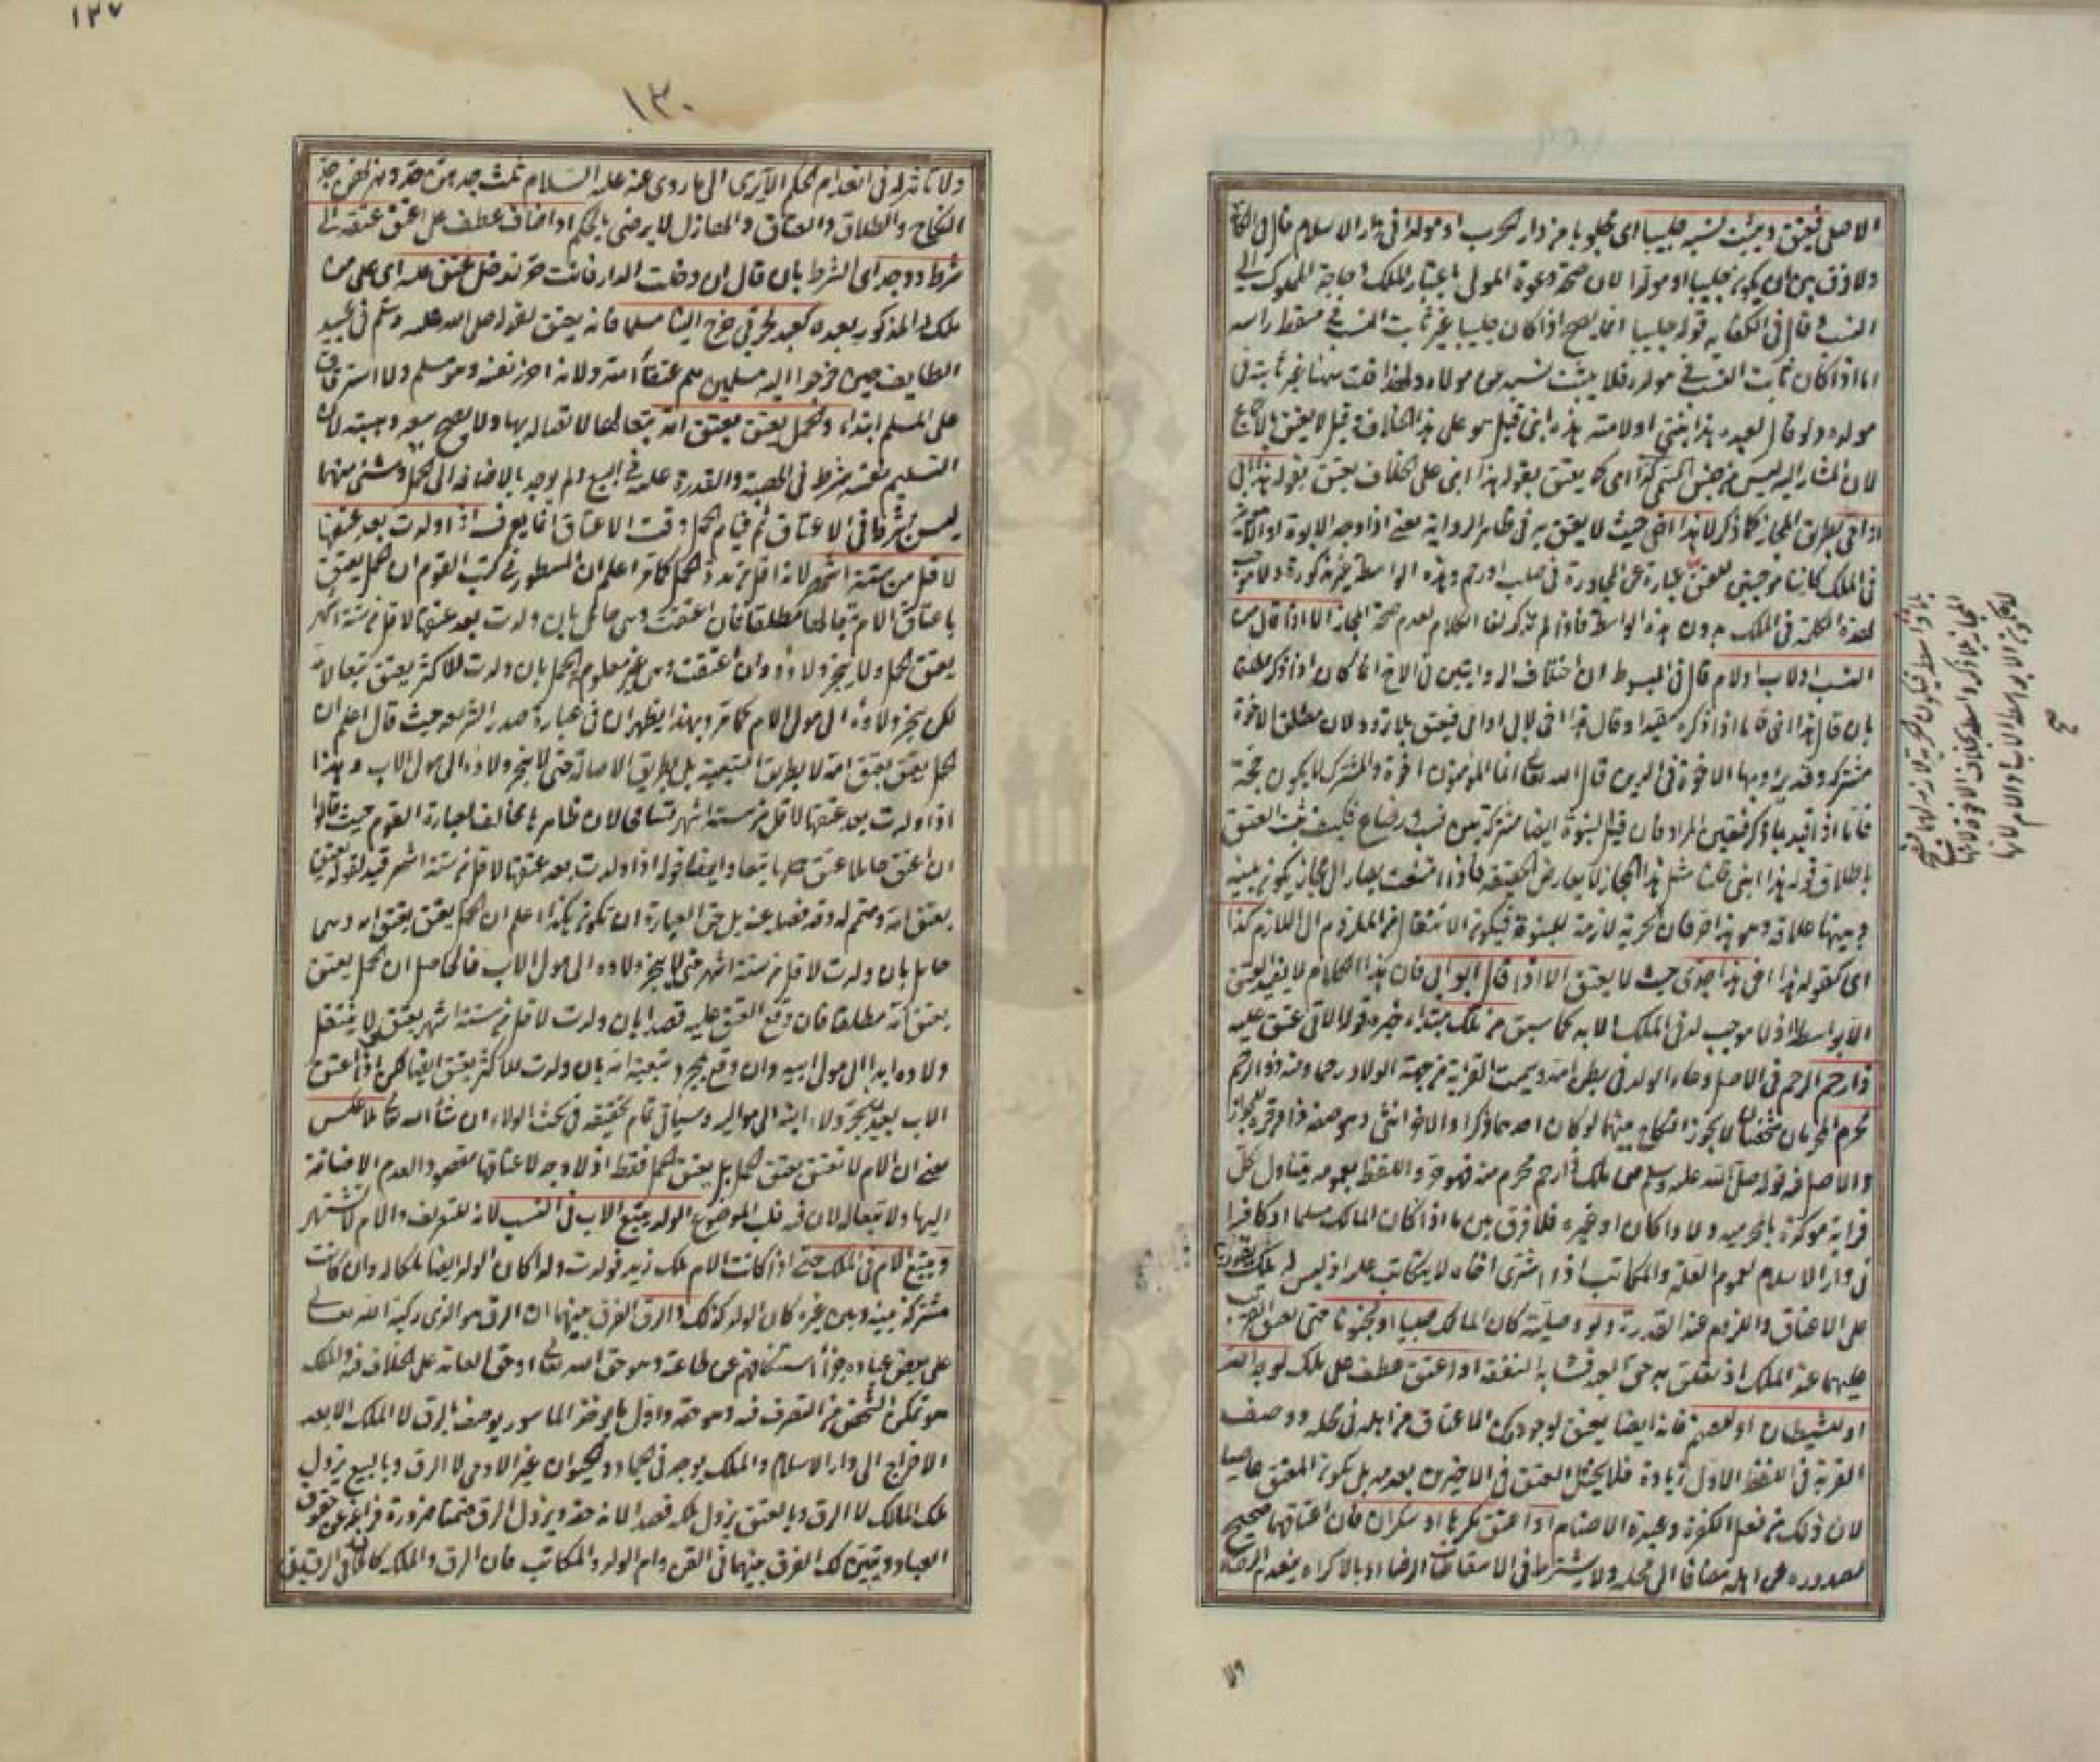 الاصلى فيعتق ويثبت نسبه جليبا اى مجلوبا من دار الحرب او مولدا فى دار الاسلام قال فى
ولا فرق بين ان يكون جليبا او مولدا لان صحة دعوة المولى باعتبار الملك وحاجة المملوك الى
النسب وقال فى الكفاية قوله جليبا انما يصح اذا كان جليبا غير ثابت النسب فى مسقط راسه
اما اذا كان ثابت النسب فى مولده فلا يثبت نسبه من مولاه ولهذا قلت ههنا غير ثابته فى
مولده ولو قال لعبده هذا بنتى او لامته هذه ابنى قيل هو على هذا الخلاف وقيل لا يعتق بالاجماع
لان المشار اليه ليس من جنس المسمى كذا اى كما يعتق بقوله هذا ابنى على الخلاف يعتق بقوله هذا ابى
او امى بطريق المجاز كما ذكر لا هذا اخى حيث لا يعتق به فى ظاهر الرواية يعنى اذا وجد الابوة او
فى الملك كانتا موجبتين للعتق عبارة عن المجاورة فى صلب او رحم وهذه الواسطة غير مذكورة ولا موجب
لهذه الكلمة فى الملك بدون هذه الواسطة فاذا لم تذكر لغا الكلام لعدم صحة المجاز الا اذا قال من
النسب او لاب او لام قال فى المبسوط ان اختلاف الروايتين فى الاخ انما كان اذا ذكر مطلقا
بان قال هذا اخى فاما اذا ذكره مقيدا وقال هذا اخى لابى او امى فيعتق بلا تردد لان مطلق الاخوة
مشترك وقد يراد بها الاخوة فى الدين قال الله تعالى انما المؤمنون اخوة والمشترك لا يكون حجة
فاما اذا قيد بما ذكر فتعين المراد فان قيل البنوة ايضا مشتركة بين نسب ورضاع فكيف يثبت العتق
باطلاق قوله هذا ابنى قلنا مثل هذا المجاز لا يعارض الحقيقة فاذا امتنعت يصار الى مجاز يكون بينه
وبينها علاقة وهو هذا حر فان الحرية لازمة للبنوة فيكون الانتقال من الملزوم الى اللازم كذا
اى كقوله هذا اخى هذا جدى حيث لا يعتق الا اذا قال ابو ابى فان هذا الكلام لا يفيد العتق
الا بواسطة اذ لا موجب له فى الملك الا به كما سبق من ملك مبتدأ خبره قوله الاتى عتق عليه
ذا رحم الرحم فى الاصل وعاء الولد فى بطن امه وسميت القرابة من جهة الولاد رحما ومنه ذو الرحم
محرم المحرمان شخصان لا يجوز النكاح بينهما لو كان احدهما ذكرا والاخر انثى وهو صفة ذا رحم وجره للجوار
والاصل فيه قوله صلى الله عليه وسلم من ملك ذا رحم محرم منه فهو حر واللفظ بعمومه يتناول كل
قرابة مؤكدة بالمحرمية ولادا كان او غيره فلا فرق بين ما اذا كان المالك مسلما او كافرا
فى دار الاسلام لعموم العلة والمكاتب اذا اشترى اخاه لا يتكاتب عليه اذ ليس له ملك
على الاعتاق والفرض عند القدرة ولو وصلية كان المالك صبيا او مجنونا حتى يعتق القريب
عليهما عند الملك اذ تعلق به حق العبد فشابه النفقة او اعتق عطف على ملك لوجه الله
او للشيطان او للصنم فانه ايضا يعتق لوجود ركن الاعتاق من اهله فى محله ووصف
القربة فى اللفظ الاول زيادة فلا يختل العتق فى الاخيرين بعدمه بل يكون المعتق عاصيا
لان ذلك من فعل الكفرة وعبدة الاصنام او اعتق مكرها او سكران فان اعتاقهما صحيح
لصدوره عن اهله مضافا الى محله ولا يشترط فى الاسقاطات الرضا او بالاكراه ينعدم الرضاء
٧٩
١٢٧
١٣٠
ولا تأثير له فى انعدام الحكم الا يرى الى ما روى عنه عليه السلام ثلث جدهن جد وهزلهن جد
النكاح والطلاق والعتاق والهازل لا يرضى بالحكم او اضاف عطف على اعتق عتقه الى
شرط ووجد اى الشرط بان قال ان دخلت الدار فانت حر فدخل عتق عليه اى على من
ملك او المذكور بعده كعبد لحربى خرج الينا مسلما فانه يعتق لقوله صلى الله عليه وسلم فى عبيد
الطايف حين خرجوا اليه مسلمين هم عتقاء الله ولانه احرز نفسه وهو مسلم ولا استرقاق
على المسلم ابتداء والحمل يعتق بعتق امه تبعا لها لاتصاله بها ولا يصح بيعه وهبته لان
التسليم نفسه شرط فى الهبة والقدرة عليه فى البيع ولم يوجد بالاضافة الى الحمل وشئ منهما
ليس بشرط فى الاعتاق ثم قيام الحمل وقت الاعتاق انما يعرف اذا ولدت بعد عتقها
لاقل من ستة اشهر لانه اقل مدة الحمل كما مر اعلم ان المسطور فى كتب القوم ان الحمل يعتق
باعتاق الام تبعا لها مطلقا فان اعتقت وهى حامل بان ولدت بعد عتقها لاقل من ستة اشهر
يعتق الحمل ولا ينجر ولاؤه وان اعتقت وهى غير معلوم الحمل بان ولدت للاكثر يعتق تبعا لامه
لكن ينجر ولاؤه الى مولى الام كما مر وبهذا يظهر ان فى عبارة صدر الشريعة حيث قال اعلم ان
الحمل يعتق بعتق امه لا بطريق التبعية بل بطريق الاصالة حتى لا ينجر ولاؤه الى مولى الاب وهذا
اذا ولدت بعد عتقها لاقل من ستة اشهر تسامحا لان ظاهرها مخالف لعبارة القوم حيث قالوا
ان اعتق حاملا عتق حملها تبعا وايضا قوله اذا ولدت بعد عتقها لاقل من ستة اشهر قيد لقوله يعتق
بعتق امه ومتمم له وقد فصل بينه بل حق العبارة ان تكون هكذا اعلم ان الحمل يعتق بعتق امه وهى
حامل بان ولدت لاقل من ستة اشهر حتى لا ينجر ولاؤه الى مولى الاب فالحاصل ان الحمل يعتق
بعتق امه مطلقا فان وقع العتق عليه قصدا بان ولدت لاقل من ستة اشهر يعتق لا ينتقل
ولاؤه ابدا الى مولى ابيه وان وقع بمجرد تبعية امه بان ولدت للاكثر يعتق ايضا لكن اذا اعتق
الاب بعده ينجر ولاء ابنه الى مواليه وسياتى تمام تحقيقه فى بحث الولاء ان شاء الله تعالى لا عكس
يعنى ان الام لا تعتق بعتق الحمل بل يعتق الحمل فقط اذ لا وجه لاعتاقها مقصودا لعدم الاضافة
اليها ولا تبعا له لان فيه قلب الموضوع الولد يتبع الاب فى النسب لانه للتعريف والام لا تشتهر
ويتبع الام فى الملك حتى اذا كانت الام ملك زيد فولدت ولدا كان الولد ايضا ملكا له وان كانت
مشتركة بينه وبين غيره كان الولد كذلك والرق الفرق بينهما ان الرق هو الذى ركبه الله تعالى
على بعض عباده جزاء استنكافهم عن طاعته وهو حق الله تعالى او حق العامة على الخلاف فيه والملك
هو تمكن الشخص من التصرف فيه وهو حقه واول ما يوخذ الماسور يوصف بالرق لا الملك الا بعد
الاخراج الى دار الاسلام والملك يوجد فى الجماد والحيوان غير الادمى لا الرق وبالبيع يزول
ملك المالك لا الرق وبالعتق يزول ملكه قصدا لانه حقه ويزول الرق ضمنا ضرورة فراغه عن حقوق
العباد ويتبين لك الفرق بينهما فى القن وام الولد والمكاتب فان الرق والملك كاملان فى الرقيق